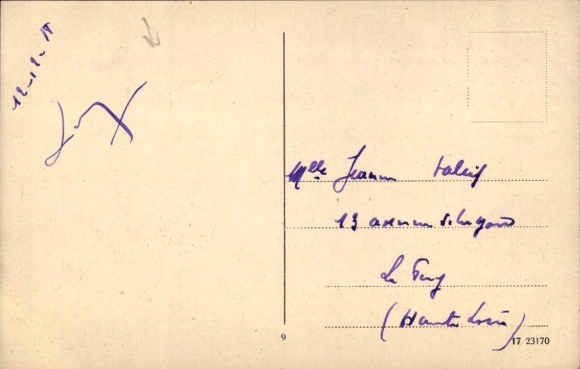 12-12-18
Mlle Jeanne
13 avenue
Le Puy
(Haute Loire)
9
17 23170